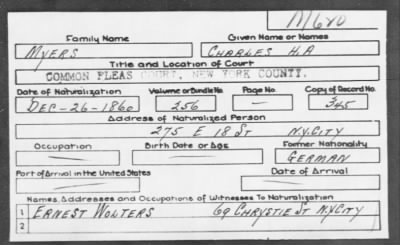 M680
Family Name Given Name or Names
MYERS CHARLES H.A
Title and Location of Court
COMMON PLEAS COURT, NEW YORK COUNTY.
Date of Naturalization Volume or Bundle No. Page No. Copy of Record No.
DEC-26-1860 256 — 345
Address of Naturalized Person
275 E 18 ST N.Y.CITY
Occupation Birth Date or Age Former Nationality
— — GERMAN
Port of Arrival in the United States Date of Arrival
— —
Names, Addresses and Occupations of Witnesses To Naturalization
1 ERNEST WOLTERS 69 CHRYSTIE ST N.Y.CITY
2